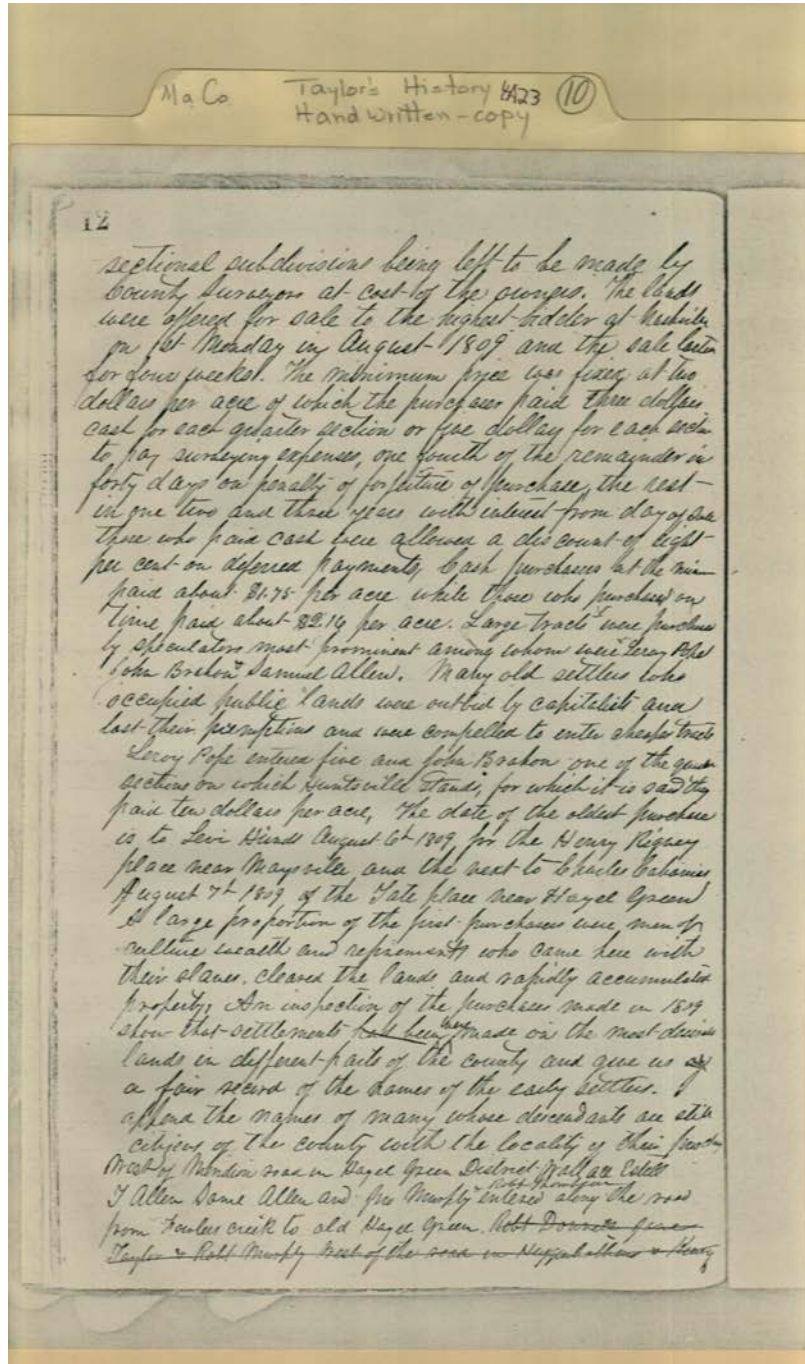 Ma Co
Taylor's History 4A23 10
Handwritten-copy
12
sectional subdivisions being left to be made by
County Surveyors at cost of the owners. The lands
were offered for sale to the highest bidder at Nashville
on 1st Monday in August 1809 and the sale
for four weeks. The minimum price was fixed at two
dollars per acre of which the purchaser paid three dollars
cash for each quarter section or five dollars for each
to pay surveying expenses, one fourth of the remainder in
forty days on penalty of forfeiture of purchase, the rest
in one two and three years with interest from day of sale
those who paid cash were allowed a discount of eight
per cent on deferred payments, Cash purchasers at the
paid about $1.75 per acre while those who purchased on
time paid about per acre. Large tracts were
by speculators most prominent among whom were Leroy Pope
John Brahon Samuel Allen. Many old settlers who
occupied public lands were outbid by capitalists and
lost their and were compelled to enter cheaper tracts
Leroy Pope entered five and John Brahon one of the
sections on which Huntsville stands, for which it is said they
paid ten dollars per acre, The date of the oldest purchase
is to Levi August 6th 1809 for the Henry
place near Maysville, and the next to Charles Cabaniss
August 7th 1809 of the Tate place near Hazel Green
A large proportion of the first purchasers were men of
culture wealth and refinement who came here with
their slaves, cleared the lands and rapidly accumulated
property, An inspection of the purchases made in 1809
show that settlements had been made on the most
lands in different parts of the county and give us
a fair record of the names of the early settlers. I
append the names of many whose descendants are still
citizens of the county with the locality of their
West of Meridian road in Hazel Green District Wallace Estill
Robt Thompson
Allen Allen and Jno Murphy entered along the road
from creek to old Hazel Green. Robt
Taylor & Robt Murphy West of the road in & Henry